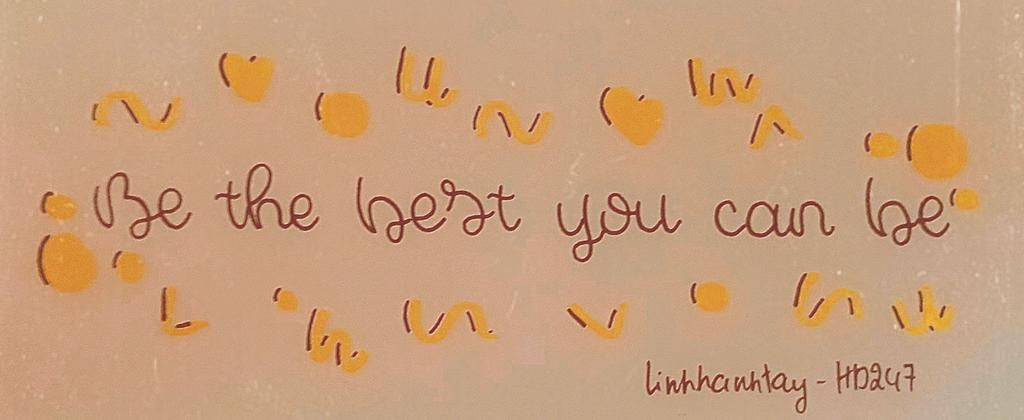 Be the best you can be
linhhanhtay - HD247